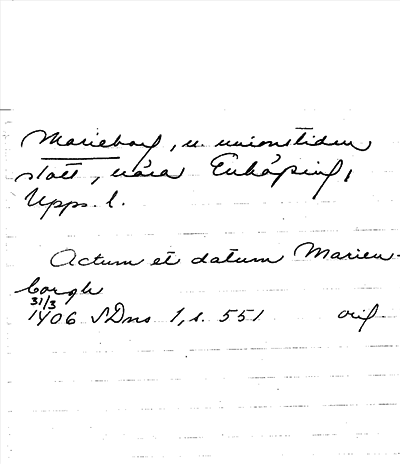 Marieborg, u. unionstiden
slott, nära Enköping,
Upps. l.
Actum et datum Marien-
borgh
31/3
1406 SDns 1, s. 551 orig